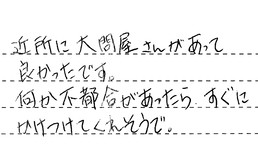 近所に大問屋さんがあって
良かったです。
何か不都合があったら、すぐに
かけつけてくれそうで。